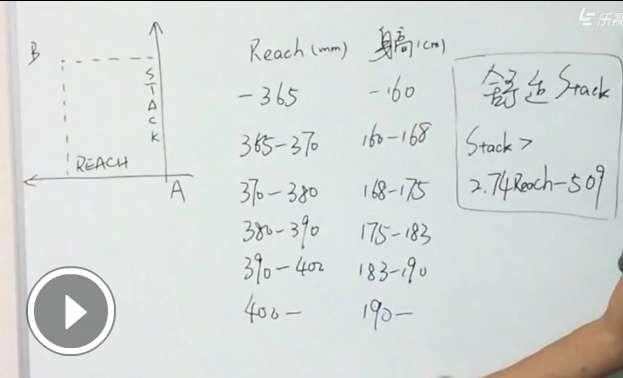 乐视
B
STACK
REACH
A
Reach(mm) 身高(cm)
-365 -160
365-370 160-168
370-380 168-175
380-390 175-183
390-400 183-190
400- 190-
舒适 Stack
Stack >
2.74Reach-509